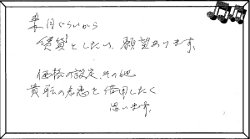 来月ぐらいから
賃貸としたい、願望あります。
価格の設定、その他
貴社の知恵を借用したく
思います。